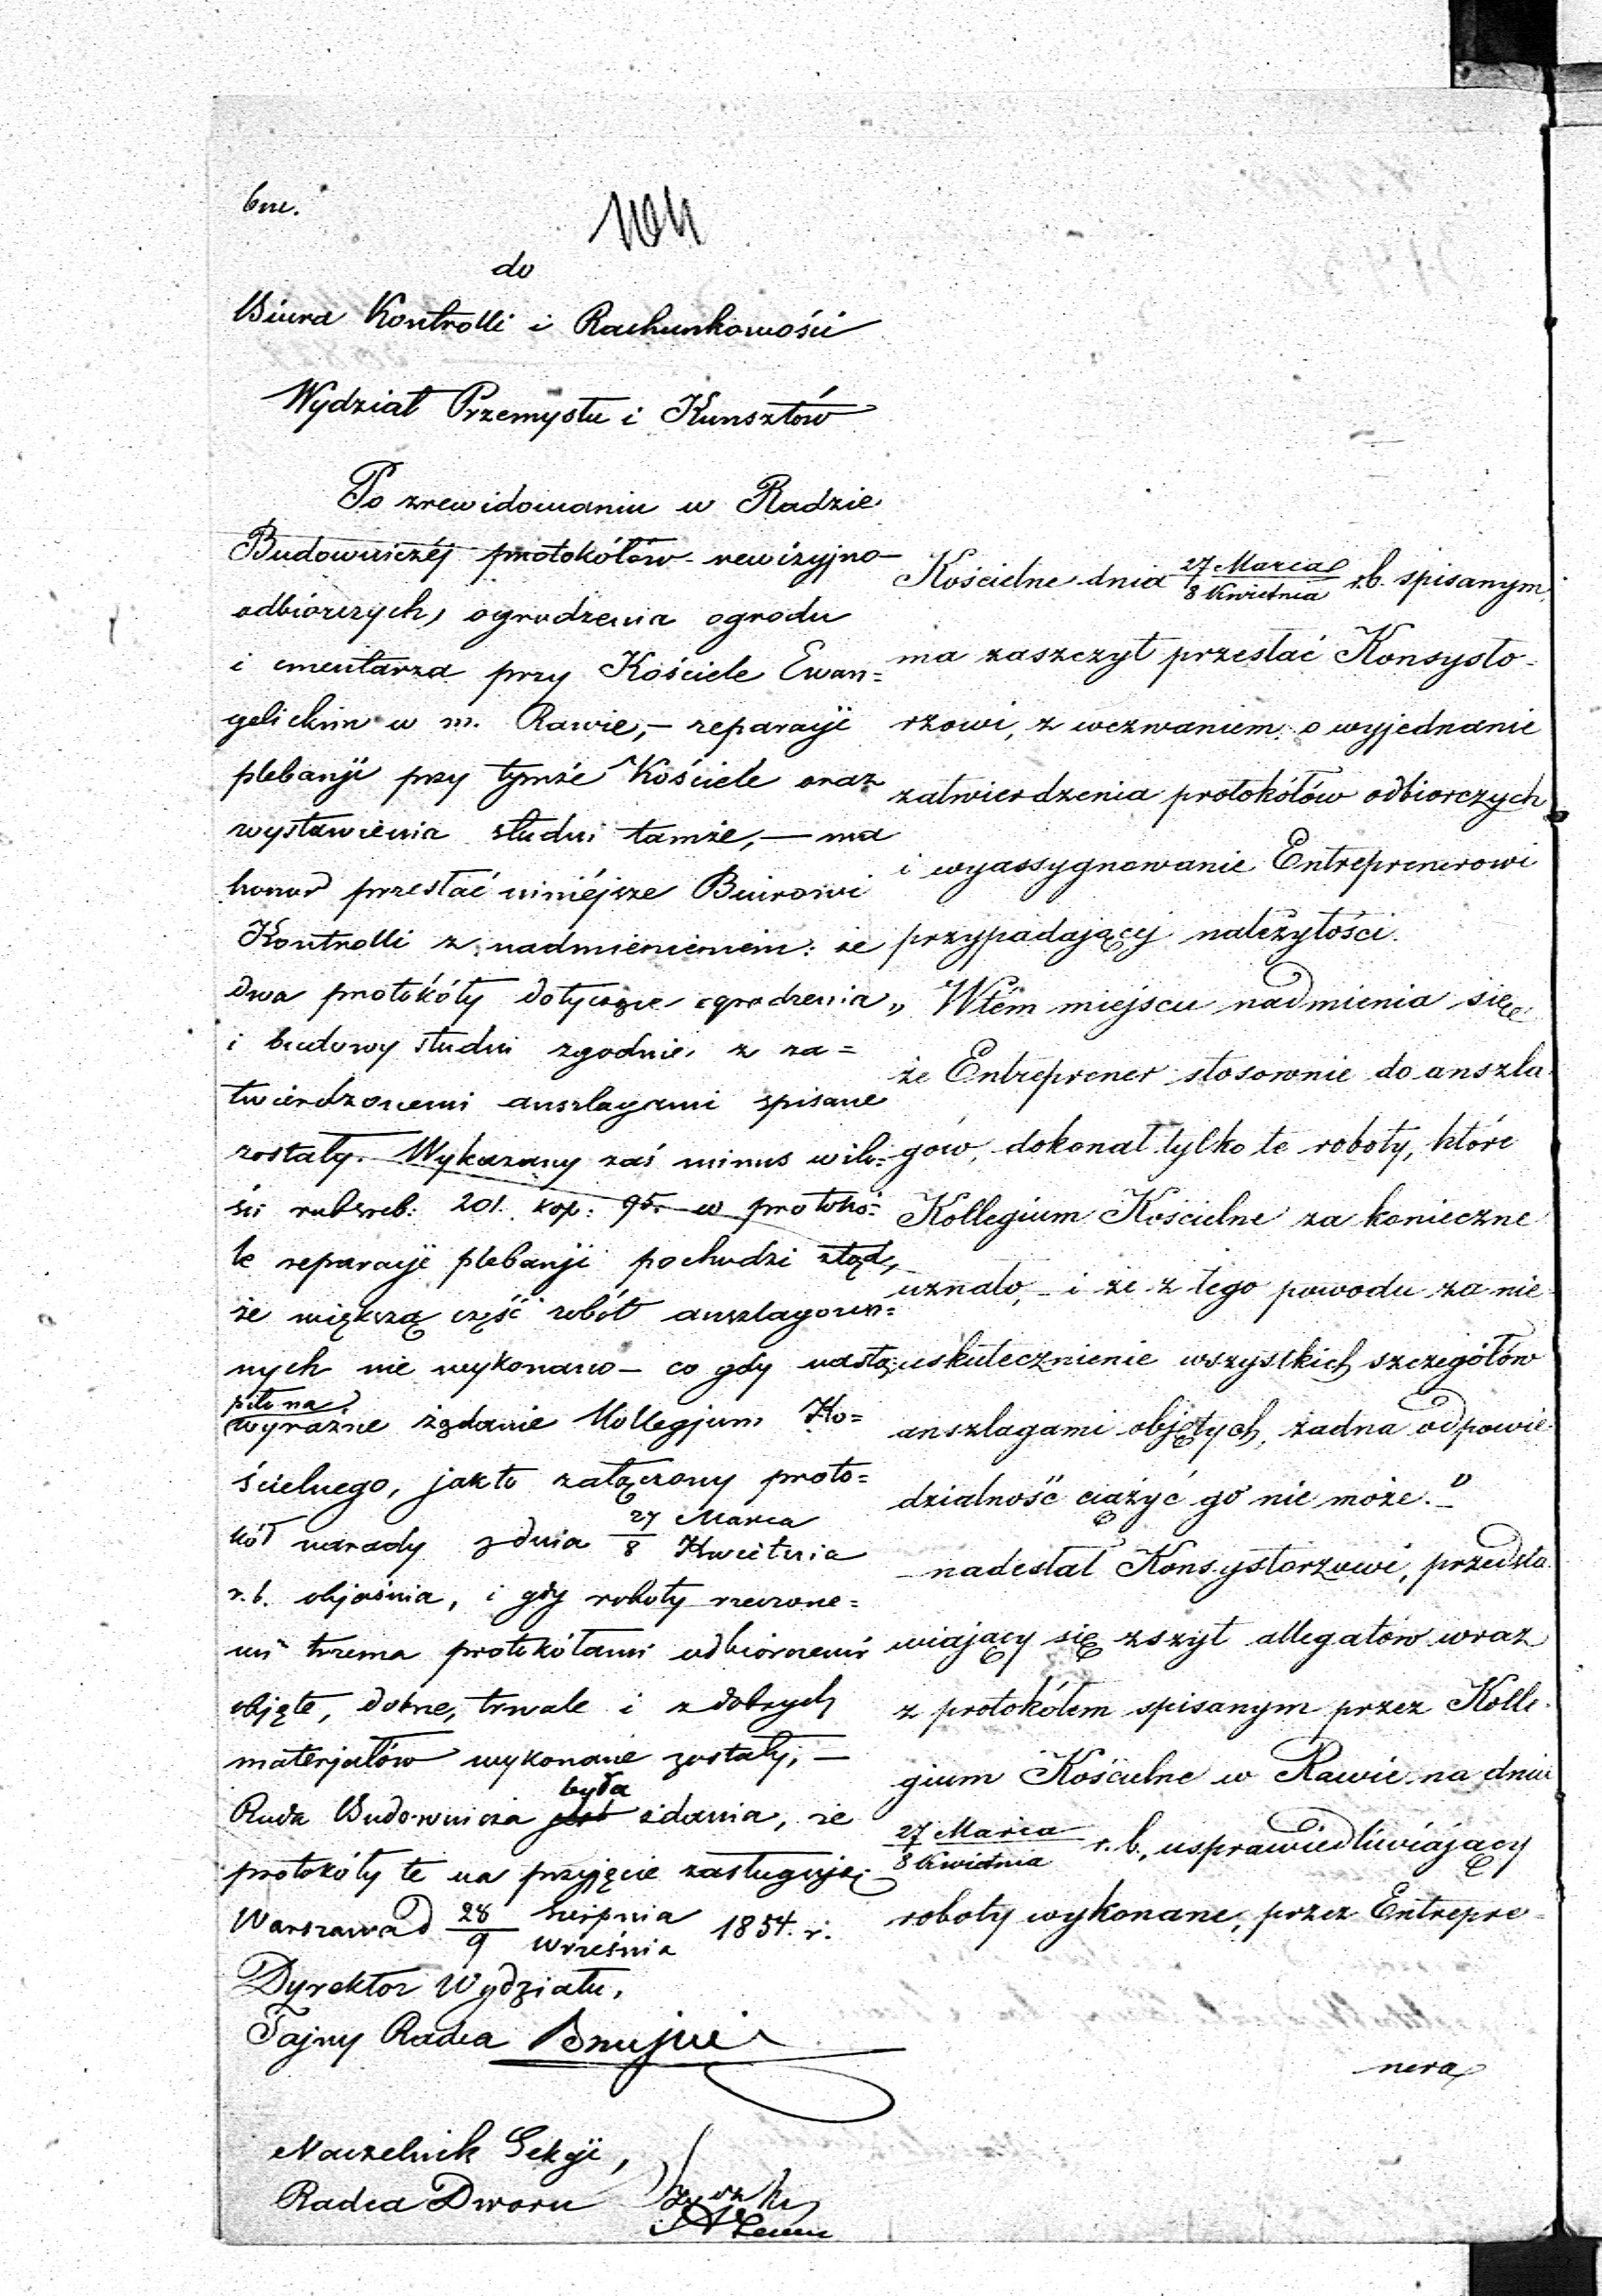 do
Biura Kontrolli i Rachunkowości
Wydział Przemysłu i Kunsztów
Po zrewidowaniu w Radzie
Budowniczéj protokółów rewizyjno-
odbiorczych, ogrodzenia ogrodu
i cmentarza przy Kościele Ewan=
gelickim w m. Rawie, – reparacji
plebanji przy tymże Kościele oraz
wystawienia studni tamże, — ma
honor przesłać niniéjsze Biurowi
Kontrolli z nadmienieniem: że
dwa protokóły dotyczące ogrodzenia
i budowy studni zgodnie z za=
twierdzonemi anszlagami spisane
zostały. Wykazany zaś minus w ilo=
ści rubsreb: 201. kop: 95. w protokó=
le reparacji plebanji pochodzi ztąd,
że większą część robót anszlagowa=
nych nie wykonano – co gdy nastą=
piło na
wyraźne żądanie Kollegjum Ko=
ścielnego, jak to załączony proto=
kół narady z dnia 27 Marca / 8 Kwietnia
r. b. objaśnia, i gdy roboty rzeczone=
mi trzema protokółami odbiorczemi
objęte, dobrze, trwale i z dobrych
materjałów wykonane zostały; —
była
Rada Budownicza jest zdania, że
protokóły te na przyjęcie zasługują.
Warszawa d 28 Sierpnia / 9 Września 1854. r.
Dyrektor Wydziału,
Tajny Radca
Naczelnik Sekcji,
Radca Dworu
Kościelne dnia 27 Marca / 8 Kwietnia r.b. spisanym,
ma zaszczyt przesłać Konsysto=
rzowi, z wezwaniem o wyjednanie
zatwierdzenia protokółów odbiorczych
i wyassygnowanie Entreprenerowi
przypadającéj należytości.
„ Wtém miejscu nadmienia się
że Entreprener stosownie do anszla
gów, dokonał tylko te roboty, które
Kollegium Kościelne za konieczne
uznało, – i że z tego powodu za nie
uskutecznienie wszystkich szczegółów
anszlagami objętych, żadna odpowie
dzialność ciążyć go nie może. –"
– nadesłał Konsystorzowi, przedsta
wiający się zszyt allegatów wraz
z protokółem spisanym przez Kolle
gium Kościelne w Rawie na dniu
27 Marca / 8 Kwietnia r. b., usprawiedliwiający
roboty wykonane, przez Entrepre=
nera